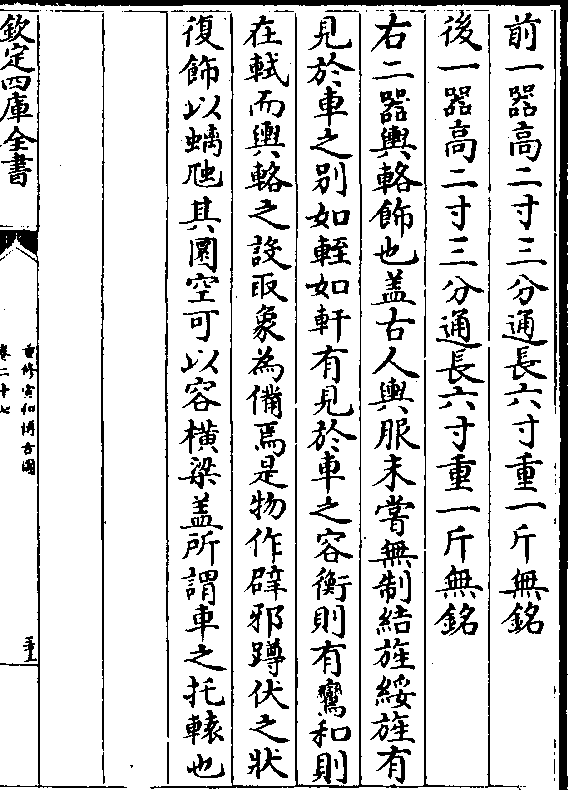 前一器高二寸三分通長六寸重一斤無銘
後一器高二寸三分通長六寸重一斤無銘
右二器輿輅飾也蓋古人輿服未嘗無制結旌綏旌有
見於車之别如輊如軒有見於車之容衡則有鸞和則
在軾而輿輅之設取象為備焉是物作辟邪蹲伏之狀
復飾以螭虺其圜空可以容横梁蓋所謂車之托轅也
欽定四庫全書
重修宣和博古圖
卷二十七